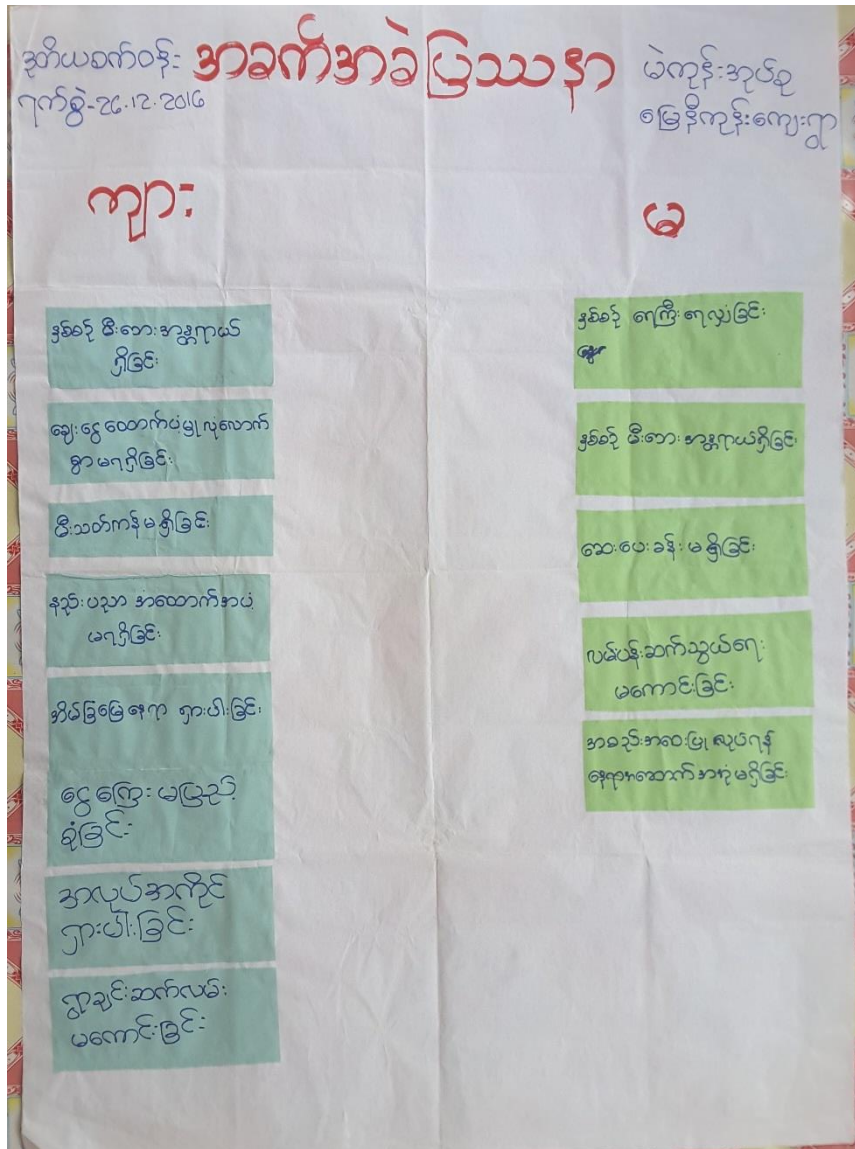 ဒုတိယစက်ဝန်း
ရက်စွဲ-26.12.2016
အခက်အခဲပြဿနာ
မဲကုန်းအုပ်စု
မြေနီကုန်းကျေးရွာ
ကျား
မ
နှစ်စဉ် မီးဘေးအန္တရာယ်
ရှိခြင်း
ချေးငွေ ထောက်ပံ့မှု လုံလောက်
စွာ မရရှိခြင်း
မီးသတ်ကန် မရှိခြင်း
နည်းပညာ အထောက်အပံ့
မရရှိခြင်း
အိမ်ခြံမြေနေရာ ရှားပါးခြင်း
ငွေကြေး မပြည့်
စုံခြင်း
အလုပ်အကိုင်
ရှားပါးခြင်း
ရွာချင်းဆက်လမ်း
မကောင်းခြင်း
နှစ်စဉ် ရေကြီး ရေလျှံခြင်း
နှစ်စဉ် မီးဘေး အန္တရာယ်ရှိခြင်း
ဆေးပေးခန်း မရှိခြင်း
လမ်းပန်းဆက်သွယ်ရေး
မကောင်းခြင်း
အစည်းအဝေးပြုလုပ်ရန်
နေရာအဆောက်အအုံမရှိခြင်း